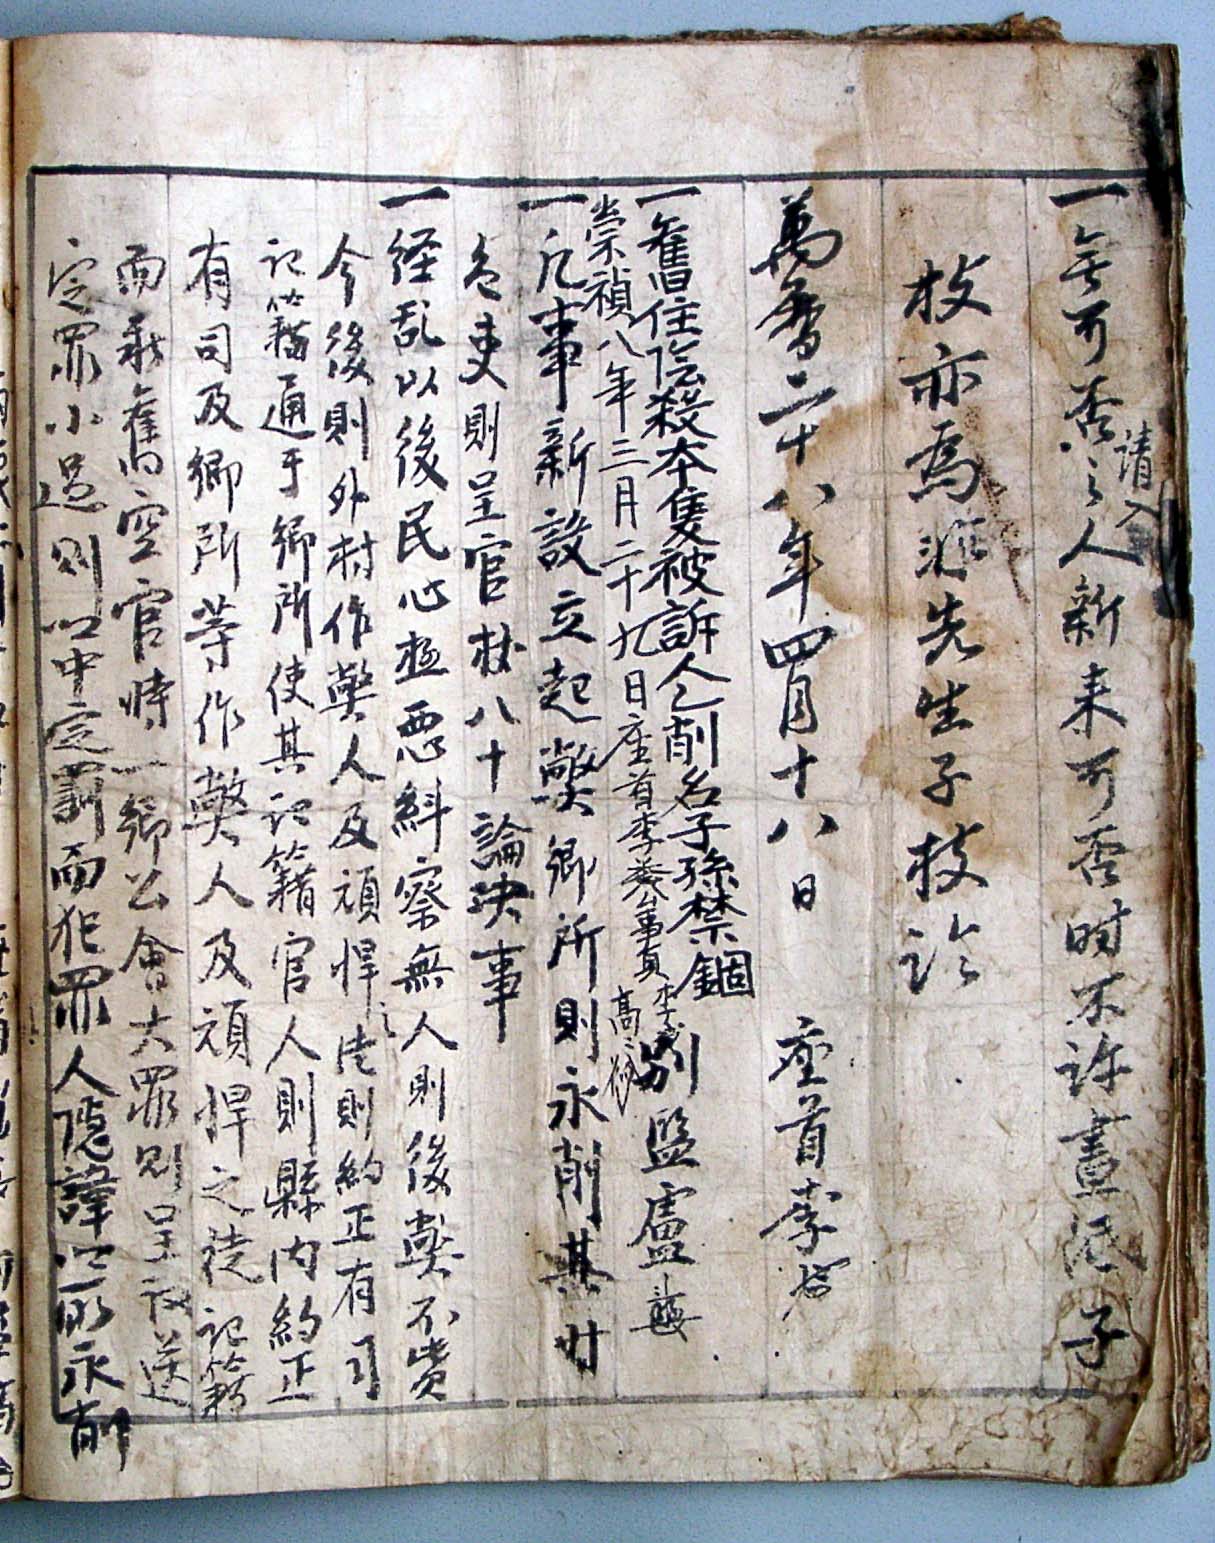 一無可否之人新來可否時不許書 子
請入
枝亦為 先生子枝
萬曆二十八年四月十八日 座首李
別監盧
一舊住 殺本隻被訴人乙削名子孫禁錮
崇禎八年三月二十九日座首李 公事員李
高
一凡事新設立起弊鄕所則永削其时
色吏則呈官杖八十論决事
一経乱以後民心極惡糾察無人則後弊不貲
今後則外村作弊人及頑悍之徒則約正有司
記籍通于鄕所使其記籍官人則縣內約正
有司及鄕所等作弊人及頑悍之徒記籍
而 舊 空官時一鄕公會大罪則呈 送
定罪小過則以中定罰而犯罪人隱諱 永削